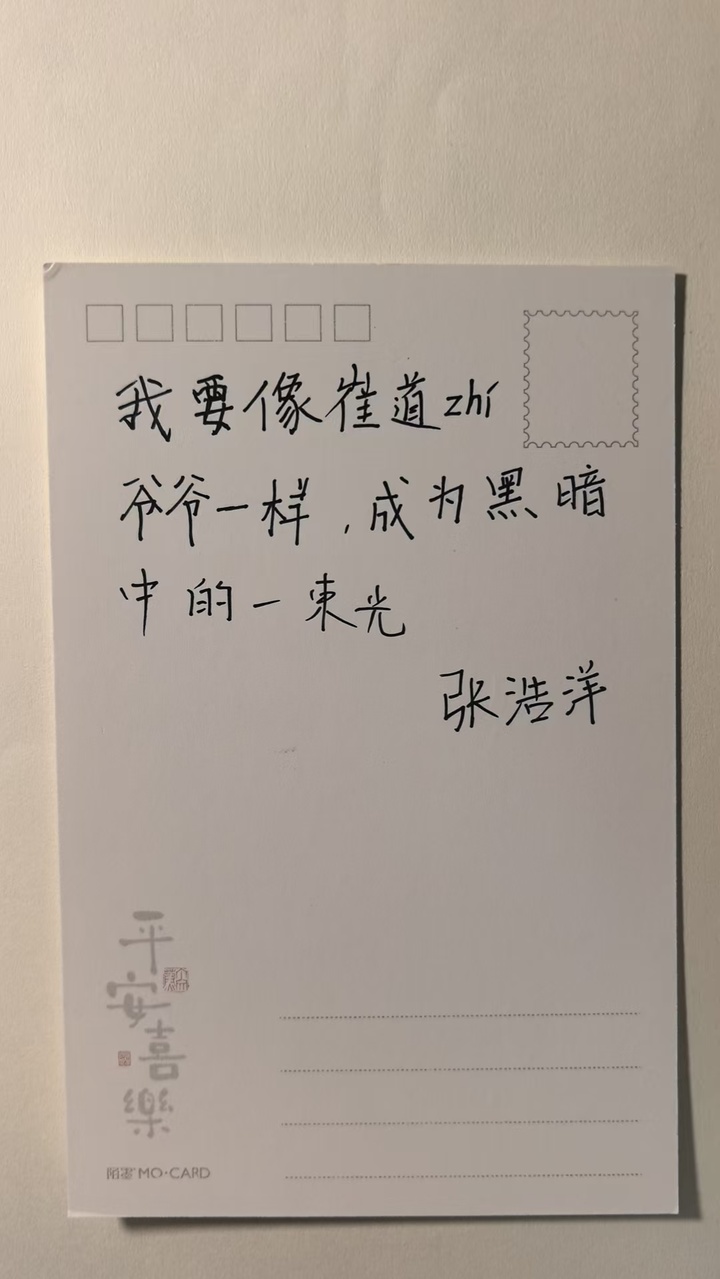 我要像崔道zhí
爷爷一样，成为黑暗
中的一束光
张浩洋
平安喜樂
陌墨 MO·CARD